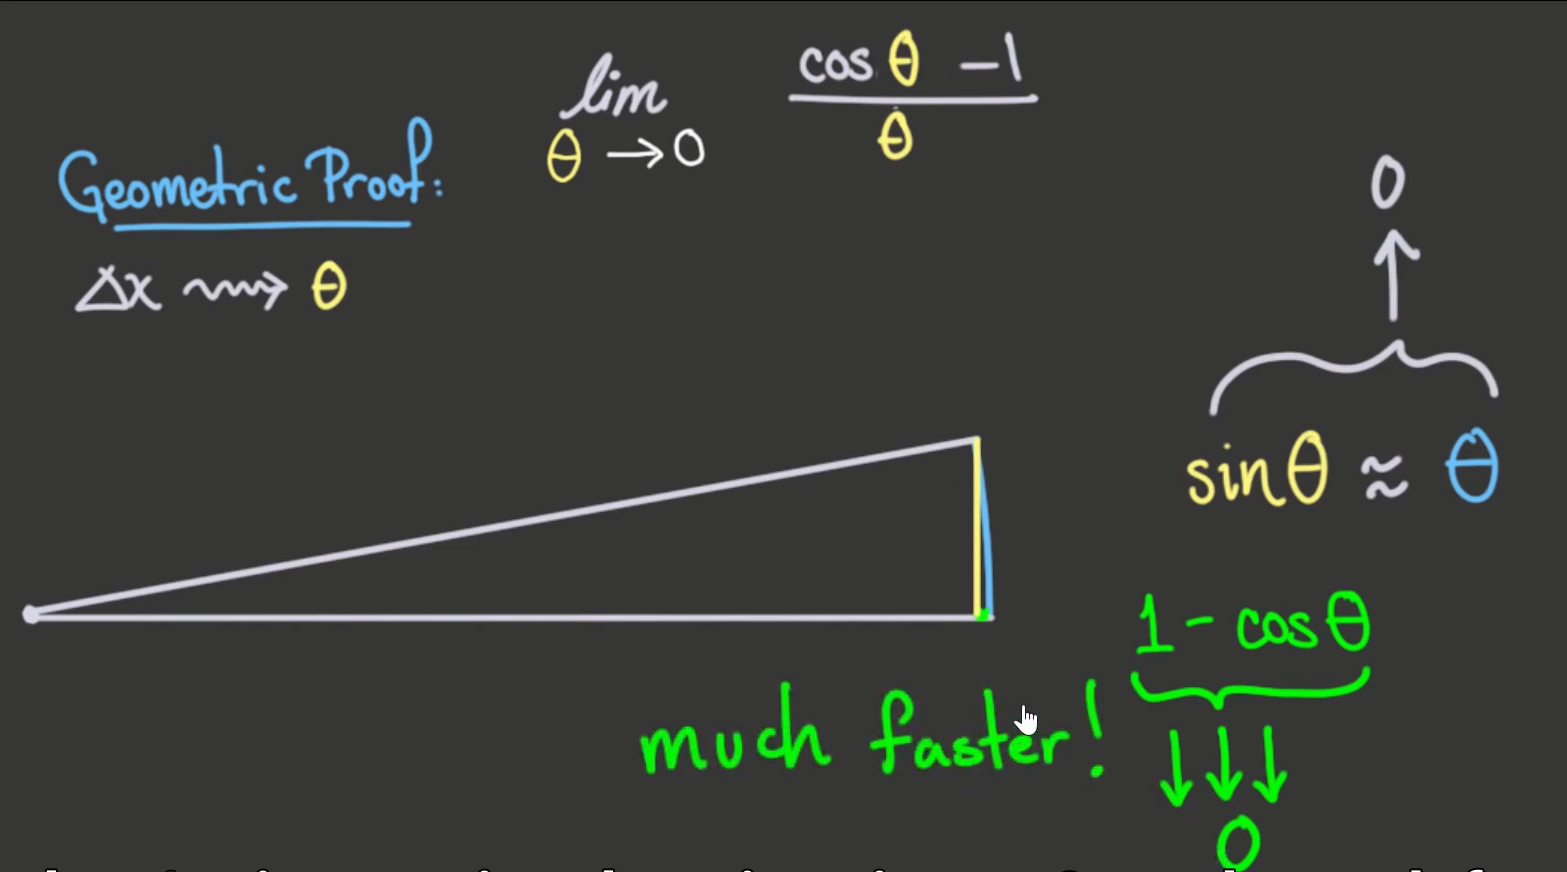 lim θ→0 cos θ - 1 / θ
Geometric Proof:
Δx ⇝ θ
0
↑
sinθ ≈ θ
1 - cosθ
much faster!
↓↓↓
0